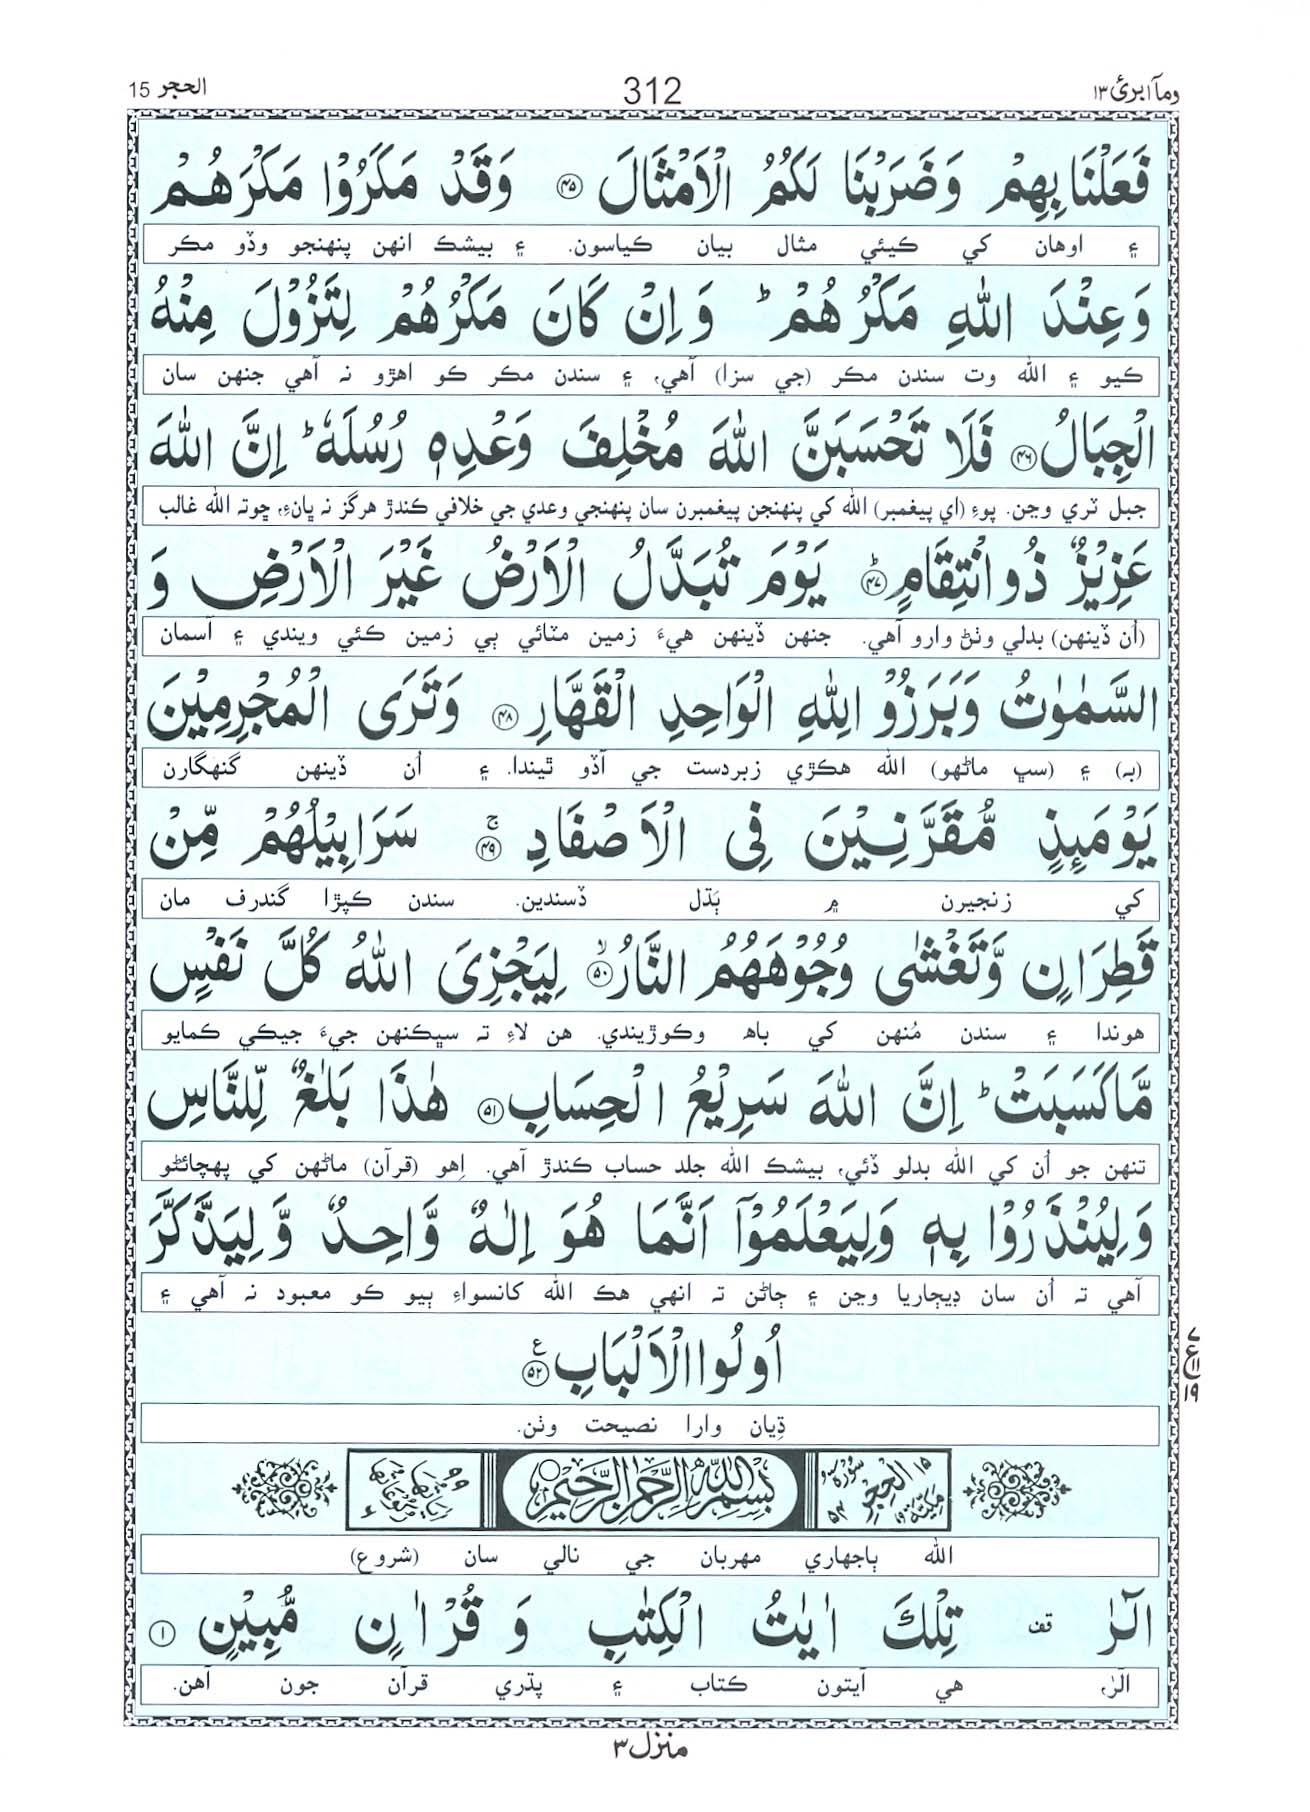 ومآ ابرئ ١٣
312
الحجر 15
فَعَلْنَا بِهِمْ وَضَرَبْنَا لَكُمُ الْاَمْثَالَ ﴿۴۵﴾ وَقَدْ مَكَرُوْا مَكْرَهُمْ
۽ اوهان کي ڪيئي مثال بيان ڪياسون. ۽ بيشڪ انهن پنهنجو وڏو مڪر
وَعِنْدَ اللّٰهِ مَكْرُهُمْ ؕ وَ اِنْ كَانَ مَكْرُهُمْ لِتَزُوْلَ مِنْهُ
ڪيو ۽ الله وٽ سندن مڪر (جي سزا) آهي، ۽ سندن مڪر ڪو اهڙو نہ آهي جنهن سان
الْجِبَالُ ﴿۴۶﴾ فَلَا تَحْسَبَنَّ اللّٰهَ مُخْلِفَ وَعْدِهٖ رُسُلَهٗ ؕ اِنَّ اللّٰهَ
جبل ٽري وڃن. پوءِ (اي پيغمبر) الله کي پنهنجن پيغمبرن سان پنهنجي وعدي جي خلافي ڪندڙ هرگز نہ ڀانءِ، ڇوتہ الله غالب
عَزِيْزٌ ذُو انْتِقَامٍ ؕ﴿۴۷﴾ يَوْمَ تُبَدَّلُ الْاَرْضُ غَيْرَ الْاَرْضِ وَ
(اُن ڏينهن) بدلي وٺڻ وارو آهي. جنهن ڏينهن هيءَ زمين مٽائي ٻي زمين ڪئي ويندي ۽ آسمان
السَّمٰوٰتُ وَبَرَزُوْ لِلّٰهِ الْوَاحِدِ الْقَهَّارِ ﴿۴۸﴾ وَتَرَى الْمُجْرِمِيْنَ
(بہ) ۽ (سڀ ماڻهو) الله هڪڙي زبردست جي آڏو ٿيندا. ۽ اُن ڏينهن گنهگارن
يَوْمَئِذٍ مُّقَرَّنِيْنَ فِى الْاَصْفَادِ ۚ﴿۴۹﴾ سَرَابِيْلُهُمْ مِّنْ
کي زنجيرن ۾ ٻڌل ڏسندين. سندن ڪپڙا گندرف مان
قَطِرَانٍ وَّتَغْشٰى وُجُوْهَهُمُ النَّارُ ۙ﴿۵۰﴾ لِيَجْزِىَ اللّٰهُ كُلَّ نَفْسٍ
هوندا ۽ سندن مُنهن کي باهہ وڪوڙيندي. هن لاءِ تہ سڀڪنهن جيءَ جيڪي ڪمايو
مَّا كَسَبَتْ ؕ اِنَّ اللّٰهَ سَرِيْعُ الْحِسَابِ ﴿۵۱﴾ هٰذَا بَلٰغٌ لِّلنَّاسِ
تنهن جو اُن کي الله بدلو ڏئي، بيشڪ الله جلد حساب ڪندڙ آهي. اِهو (قرآن) ماڻهن کي پهچائڻو
وَلِيُنْذَرُوْا بِهٖ وَلِيَعْلَمُوْۤا اَنَّمَا هُوَ اِلٰهٌ وَّاحِدٌ وَّلِيَذَّكَّرَ
آهي تہ اُن سان ڊيڄاريا وڃن ۽ ڄاڻن تہ انهي هڪ الله کانسواءِ ٻيو ڪو معبود نہ آهي ۽
اُولُوا الْاَلْبَابِ ﴿۵۲﴾ ع
ڌيان وارا نصيحت وٺن.
١٥ سُوْرَةُ الْحِجْرِ مَكِّيَّةٌ ٥٤ بِسْمِ اللّٰهِ الرَّحْمٰنِ الرَّحِيْمِ اٰيَاتُهَا ٩٩ رُكُوْعَاتُهَا ٦
الله ٻاجهاري مهربان جي نالي سان (شروع)
الٓرٰ قف تِلْكَ اٰيٰتُ الْكِتٰبِ وَ قُرْاٰنٍ مُّبِيْنٍ ﴿۱﴾
الٓرٰ، هي آيتون ڪتاب ۽ پڌري قرآن جون آهن.
منزل ٣